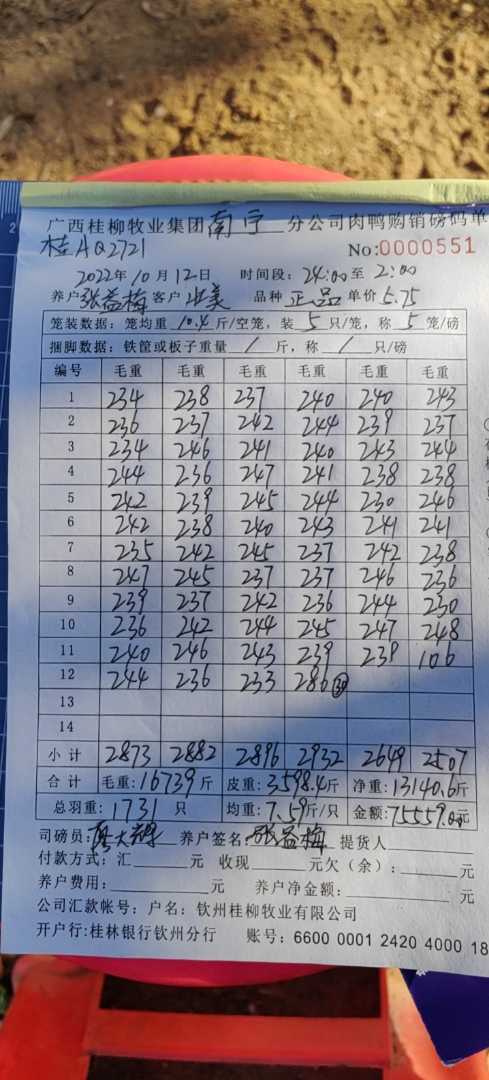 广西桂柳牧业集团南宁分公司肉鸭购销磅码单
桂AQ2721 No:0000551
2022年10月12日 时间段:24:00至2:00
养户张益梅客户 品种正品单价5.75
笼装数据:笼均重10.4斤/空笼,装5只/笼,称5笼/磅
捆脚数据:铁筐或板子重量/斤,称/只/磅
编号 毛重 毛重 毛重 毛重 毛重 毛重
1 234 238 237 240 240 243
2 236 237 242 244 239 237
3 234 246 241 240 243 244
4 244 236 247 241 238 238
5 242 239 245 244 230 246
6 242 238 240 243 241 241
7 235 242 245 237 242 238
8 247 245 237 237 246 236
9 239 237 242 236 244 230
10 236 242 244 245 247 248
11 240 246 243 239 239 106
12 244 236 233 286
13
14
小计 2873 2882 2896 2932 2649 2507
合计 毛重:16739斤 皮重:3598.4斤 净重:13140.6斤
总羽重:1731只 均重:7.59斤/只 金额:75559.00元
司磅员: 养户签名:张益梅 提货人
付款方式:汇 元 收现 元欠(余): 元
养户费用: 元 养户净金额: 元
公司汇款帐号:户名:钦州桂柳牧业有限公司
开户行:桂林银行钦州分行 账号:6600 0001 2420 4000 18